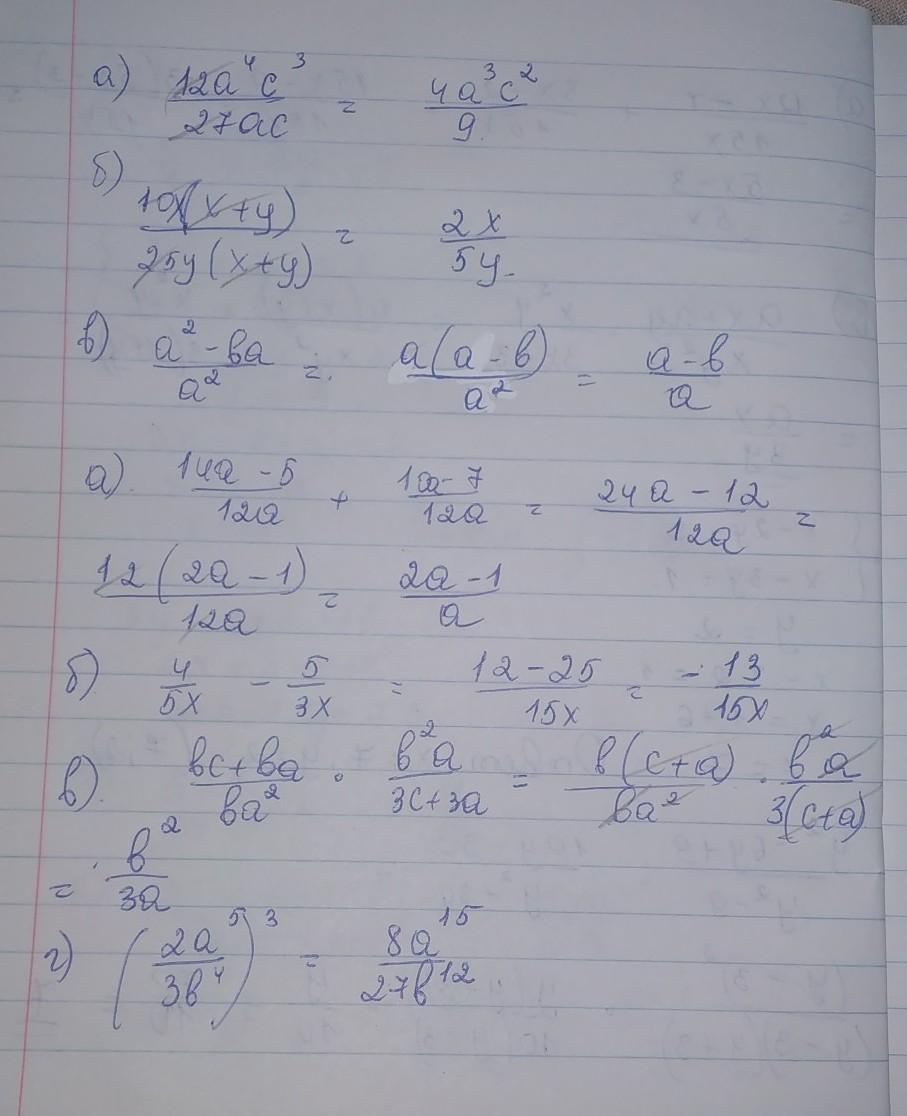 а) 12a⁴c³/27ac = 4a³c²/9.
б)
10x(x+y)/25y(x+y) = 2x/5y.
в) (a²-вa)/a² = a(a-в)/a² = (a-в)/a
а). (14a-5)/12a + (10a-7)/12a = (24a-12)/12a =
12(2a-1)/12a = (2a-1)/a
б) 4/5x - 5/3x = (12-25)/15x = -13/15x
в). (вc+вa)/вa² · в²a/(3c+3a) = в(c+a)/вa² · в²a/3(c+a)
= в²/3a
г) (2a⁵/3в⁴)³ = 8a¹⁵/27в¹²